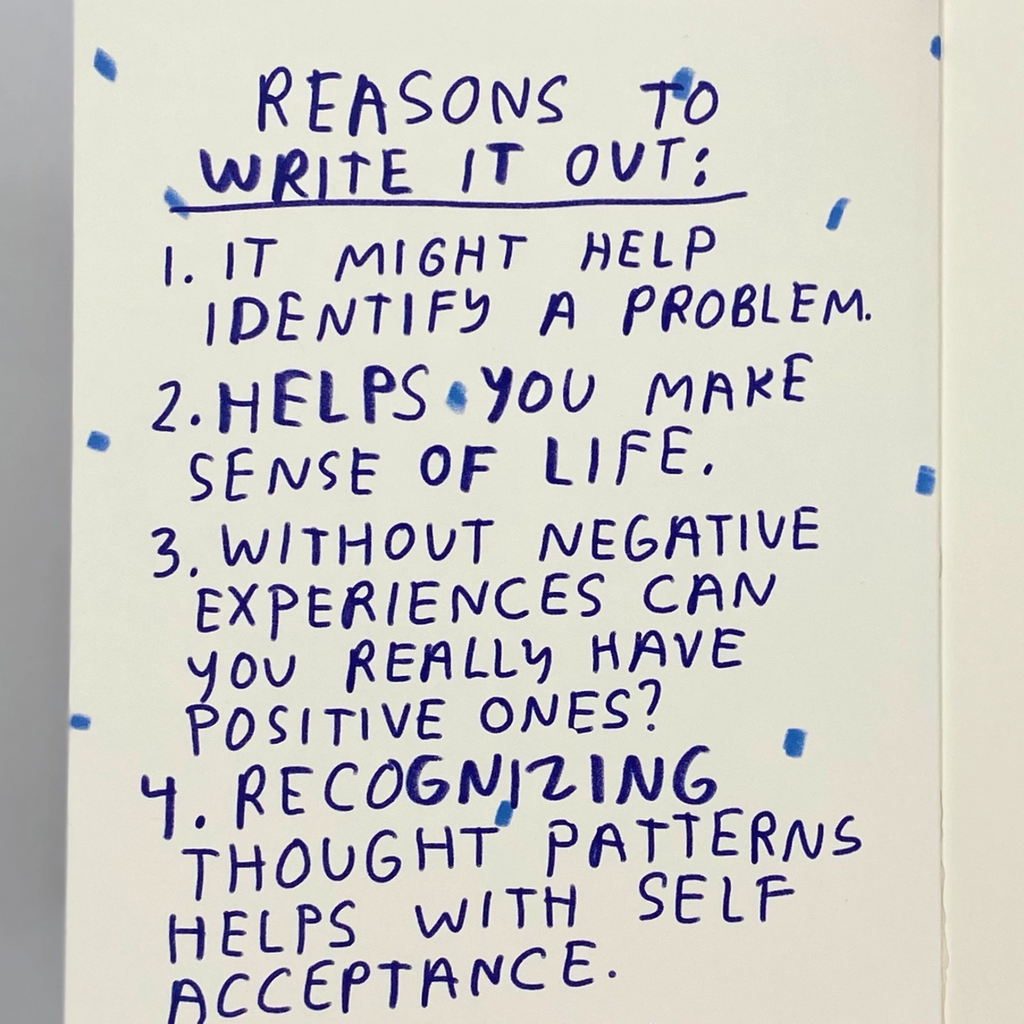 REASONS TO
WRITE IT OUT:
1. IT MIGHT HELP
IDENTIFY A PROBLEM.
2. HELPS YOU MAKE
SENSE OF LIFE.
3. WITHOUT NEGATIVE
EXPERIENCES CAN
YOU REALLY HAVE
POSITIVE ONES?
4. RECOGNIZING
THOUGHT PATTERNS
HELPS WITH SELF
ACCEPTANCE.